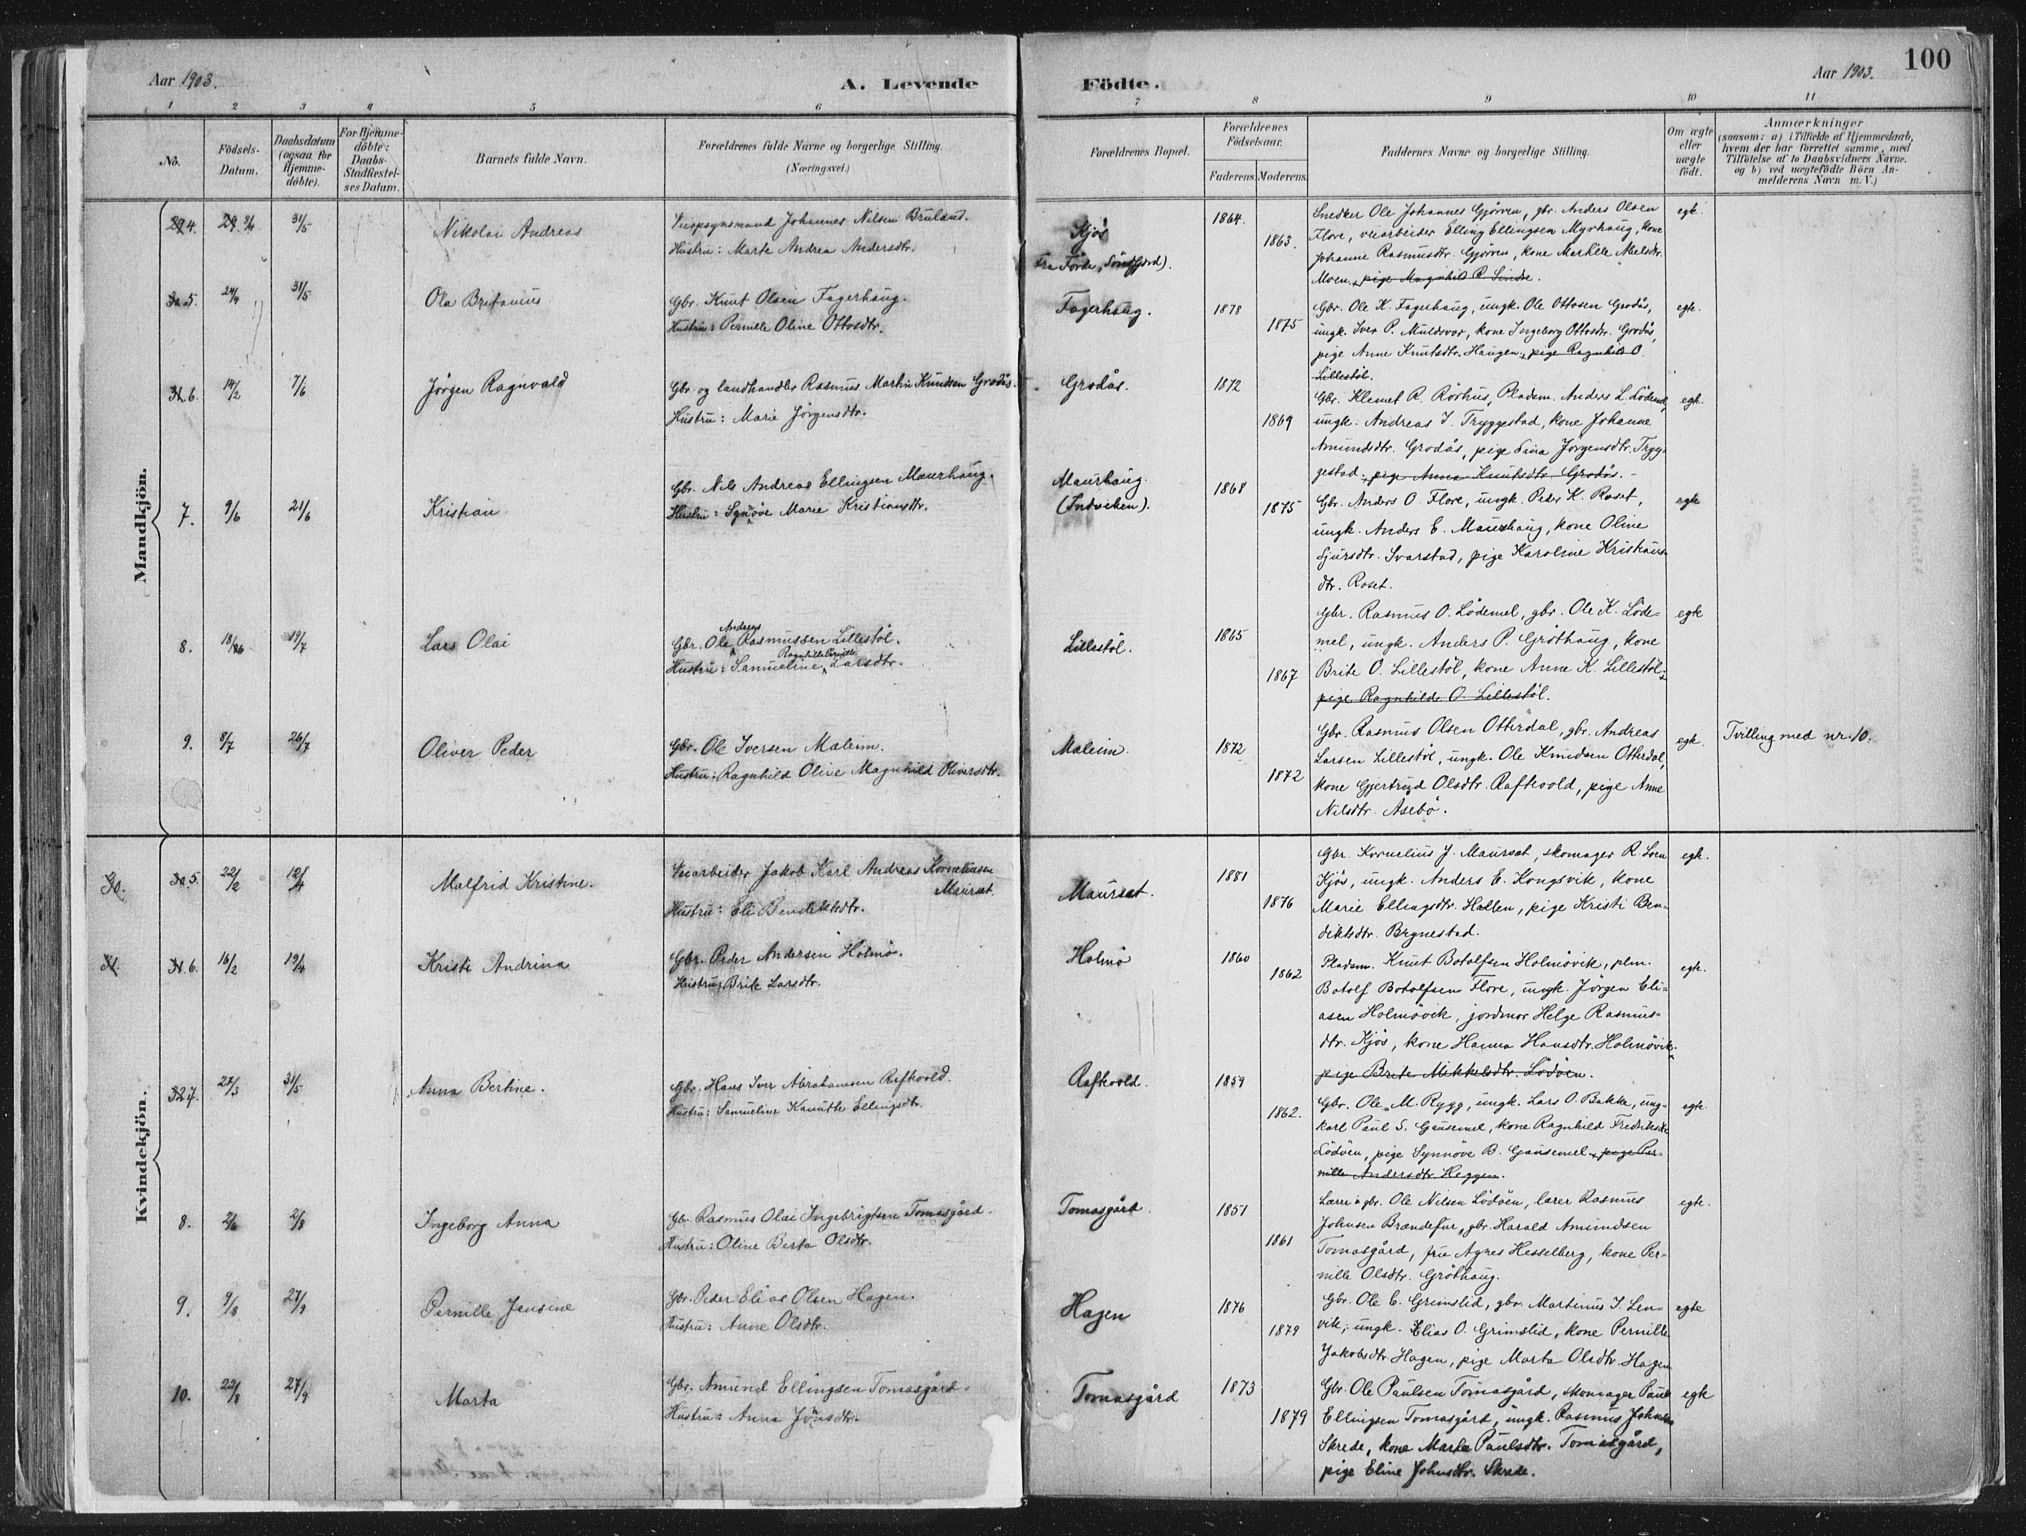 Aar 1903.
A. Levende
Födte.
Aar 1903.
100
1 2 3 4 5 6 7 8 9 10 11
No.
Födsels-
Datum.
Daabsdatum
(ogsaa for
Hjemme-
döbte).
For Hjemme-
döbte:
Daabs-
Stadfæstel-
ses Datum.
Barnets fulde Navn.
Forældrenes fulde Navne og borgerlige Stilling.
(Næringsvei.)
Forældrenes Bopæl.
Forældrenes
Födselsaar.
Faderens. Moderens.
Faddernes Navne og borgerlige Stilling.
Om ægte
eller
uægte
födt.
Anmærkninger
(saasom: a) i Tilfælde af Hjemmedaab,
hvem der har forrettet samme, med
Tilföielse af to Daabsvidners Navne,
og b) ved uægtefödte Börn An-
melderens Navn m. V.)
Mandkjön.
4. 31/5
Nikolai Andreas
Veiopsynsmand Johannes Nilsen Bruland.
Hustru: Marte Andrea Andersdtr.
Kjös
fra Förde, Söndfjord).
1864.
1863.
Snedker Ole Johannes Gjörven, gbr. Anders Olsen
Flore, veiarbeider Elling Ellingsen Myrhaug, kone
Johanne Rasmusdtr. Gjörven, kone Marthe Nielsdtr.
Moen, pige Magnhild R. Sinde.
egt.
5. 24/4 31/5
Ola Britanius
Gbr. Knut Olsen Fagerhaug.
Hustru: Pernille Oline Ottosdtr.
Fagerhaug.
1878
1875
Gbr. Ole K. Fagerhaug, ungk. Ole Ottosen Grodås,
ungk. Iver P. Muldsvor, kone Ingeborg Ottosdtr. Grodås,
pige Anne Knutsdtr. Haugen, pige Ragnhild O.
Lillestöl.
egte.
6. 14/2 7/6
Jörgen Ragnvald
Gbr. og landhandler Rasmus Martin Knudsen Grodås.
Hustru: Marie Jörgensdtr.
Grodås.
1872
1869
Gbr. Klemet R. Rörhus, Pladsm. Anders L. Lödemel,
ungk. Andreas J. Tryggestad, kone Johanne
Amundsdtr. Grodås, pige Sina Jörgensdtr. Tryg-
gestad, pige Anna Knutsdtr. Grodås.
egt.
7. 9/6 21/6
Kristian
Gbr. Nils Andreas Ellingsen Maurhaug.
Hustru: Synnöve Marie Kristiansdtr.
Maurhaug.
(Indviken).
1868
1875
Gbr. Anders O. Flore, ungk. Peder K. Roset,
ungk. Anders E. Maurhaug, kone Oline
Sjursdtr. Svarstad, pige Karoline Kristians-
dtr. Roset.
egte
8. 18/6 19/7
Lars Olai
Andreas
Gbr. Ole Rasmussen Lillestöl.
Ragnhilde Pernille
Hustru: Samueline Larsdtr.
Lillestöl.
1865
1867
Gbr. Rasmus O. Lödemel, gbr. Ole K. Löde-
mel, ungk. Anders P. Gröthaug, kone
Brite O. Lillestöl, kone Anne K. Lillestöl,
pige Ragnhilde O. Lillestöl.
egte
9. 8/7 26/7
Oliver Peder
Gbr. Ole Iversen Maleim.
Hustru: Ragnhild Olive Magnhild Oliversdtr.
Maleim.
1872
1872
Gbr. Rasmus Olsen Otterdal, gbr. Andreas
Larsen Lillestöl, ungk. Ole Knudsen Otterdal,
kone Gjertrud Olsdtr. Raftevold, pige Anne
Nilsdtr. Asebö.
egt.
Tvilling med nr. 10.
Kvindekjön.
30. 5. 22/2 12/4
Malfrid Kristine.
Veiarbeider Jakob Karl Andreas Korneliusen
Maurset.
Hustru: Eli Bendiktsdtr.
Maurset.
1881
1876
Gbr. Kornelius J. Maurset, skomager R. Loen
Kjös, ungk. Anders E. Kongsvik, kone
Marie Ellingsdtr. Hallen, pige Kristi Ben-
diktsdtr. Brynestad.
egt.
31. 6. 16/2 19/4
Kristi Andrina
Gbr. Peder Andersen Holmö.
Hustru: Brite Larsdtr.
Holmö
1860
1862
Pladsm. Knut Botolfsen Holmövik, plm.
Botolf Botolfsen Flore, ungk. Jörgen Eli-
asen Holmövik, jordmor Helge Rasmus-
dtr. Kjös, kone Hanna Hansdtr. Holmövik,
pige Brite Mikkelsdtr. Lödöen.
egt.
32 7. 27/3 31/5
Anna Bertine.
Gbr. Hans Iver Abrahamsen Raftevold.
Hustru: Samueline Kanutte Ellingsdtr.
Raftevold.
1859
1862.
Gbr. Ole M. Rygg, ungk. Lars O. Bakke, ung-
karl Paul S. Gausemel, kone Ragnhild Fredriksdtr.
Lödöen, pige Synnöve B. Gausemel, pige Per-
nille Andersdtr. Heggen.
egte
8. 2/6 2/8
Ingeborg Anna
Gbr. Rasmus Olai Ingebrigtsen Tomasgård.
Hustru: Oline Berta Olsdtr.
Tomasgård.
1851
1861
Lærer o gbr. Ole Nilsen Lödöen, lærer Rasmus
Johnsen Brændefur, gbr. Harald Amundsen
Tomasgård, fru Agnes Hesselberg, kone Per-
nille Olsdtr. Gröthaug.
egte.
9. 9/8 27/9
Pernille Jensine
Gbr. Peder Elias Olsen Hagen.
Hustru: Anne Olsdtr.
Hagen
1876
1879
Gbr. Ole E. Grimslid, gbr. Martinus I. Len-
vik, ungk. Elias O. Grimslid, kone Pernille
Jakobsdtr. Hagen, pige Marta Olsdtr. Hagen
egte
10. 22/8 27/9
Marta
Gbr. Amund Ellingsen Tomasgård.
Hustru: Anna Jönsdtr.
Tomasgård
1873
1879
Gbr. Ole Paulsen Tomasgård, skomager Paul
Ellingsen Tomasgård, ungk. Rasmus Johnsen
Skrede, kone Marta Paulsdtr. Tomasgård,
pige Eline Johnsdtr. Skrede.
egte